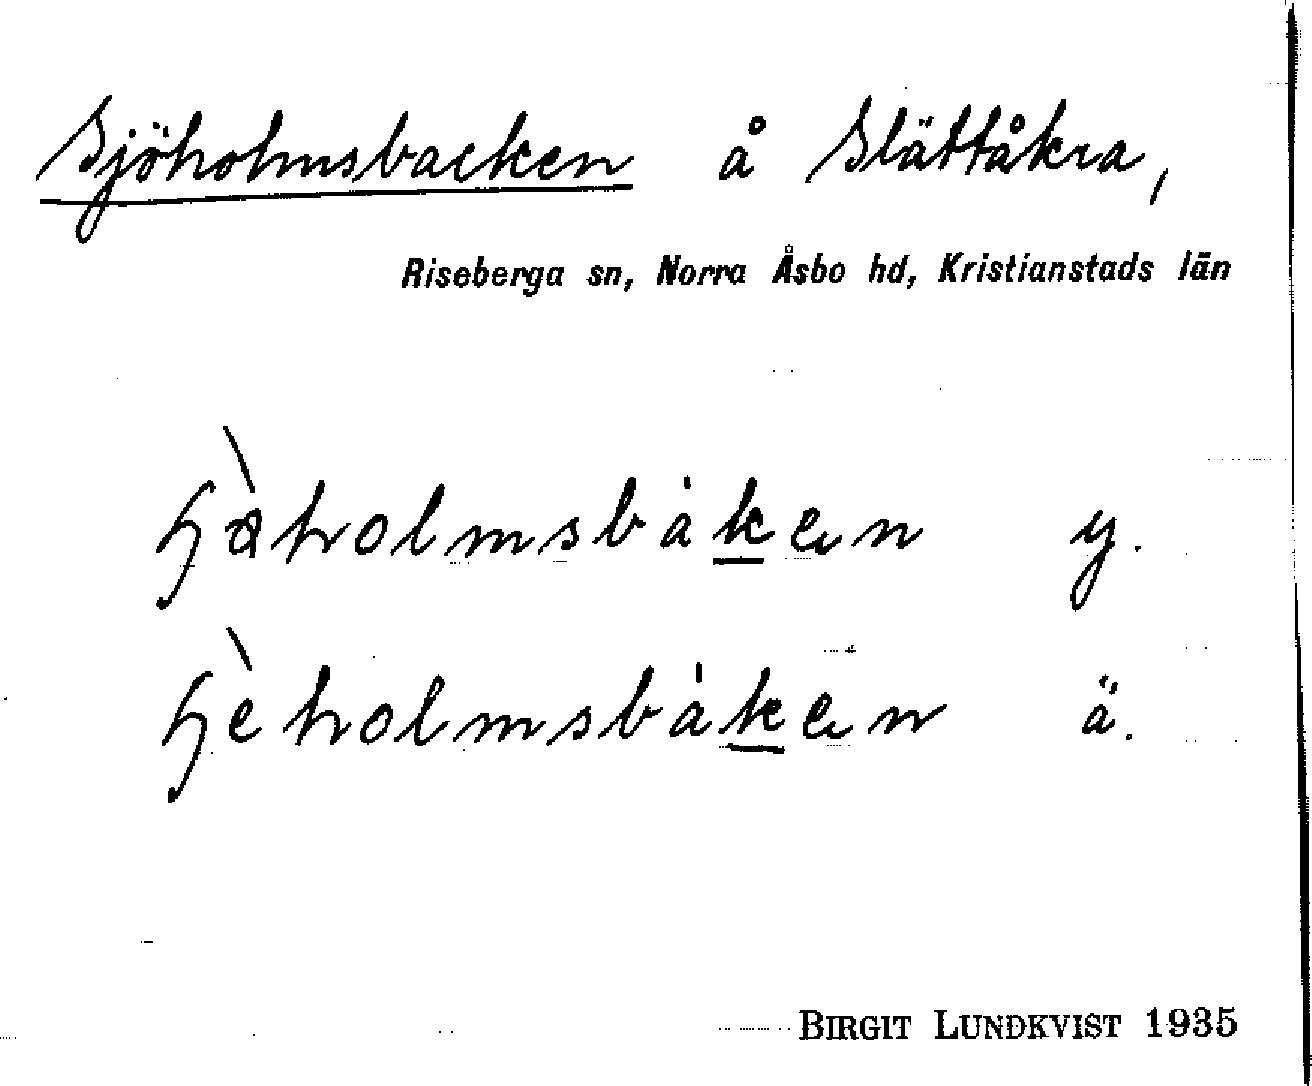 Sjöholmsbacken å Slättåkra,
Riseberga sn, Norra Åsbo hd, Kristianstads län
ɧàholmsbàken y.
ɧèholmsbàken ä.
BIRGIT LUNDKVIST 1935